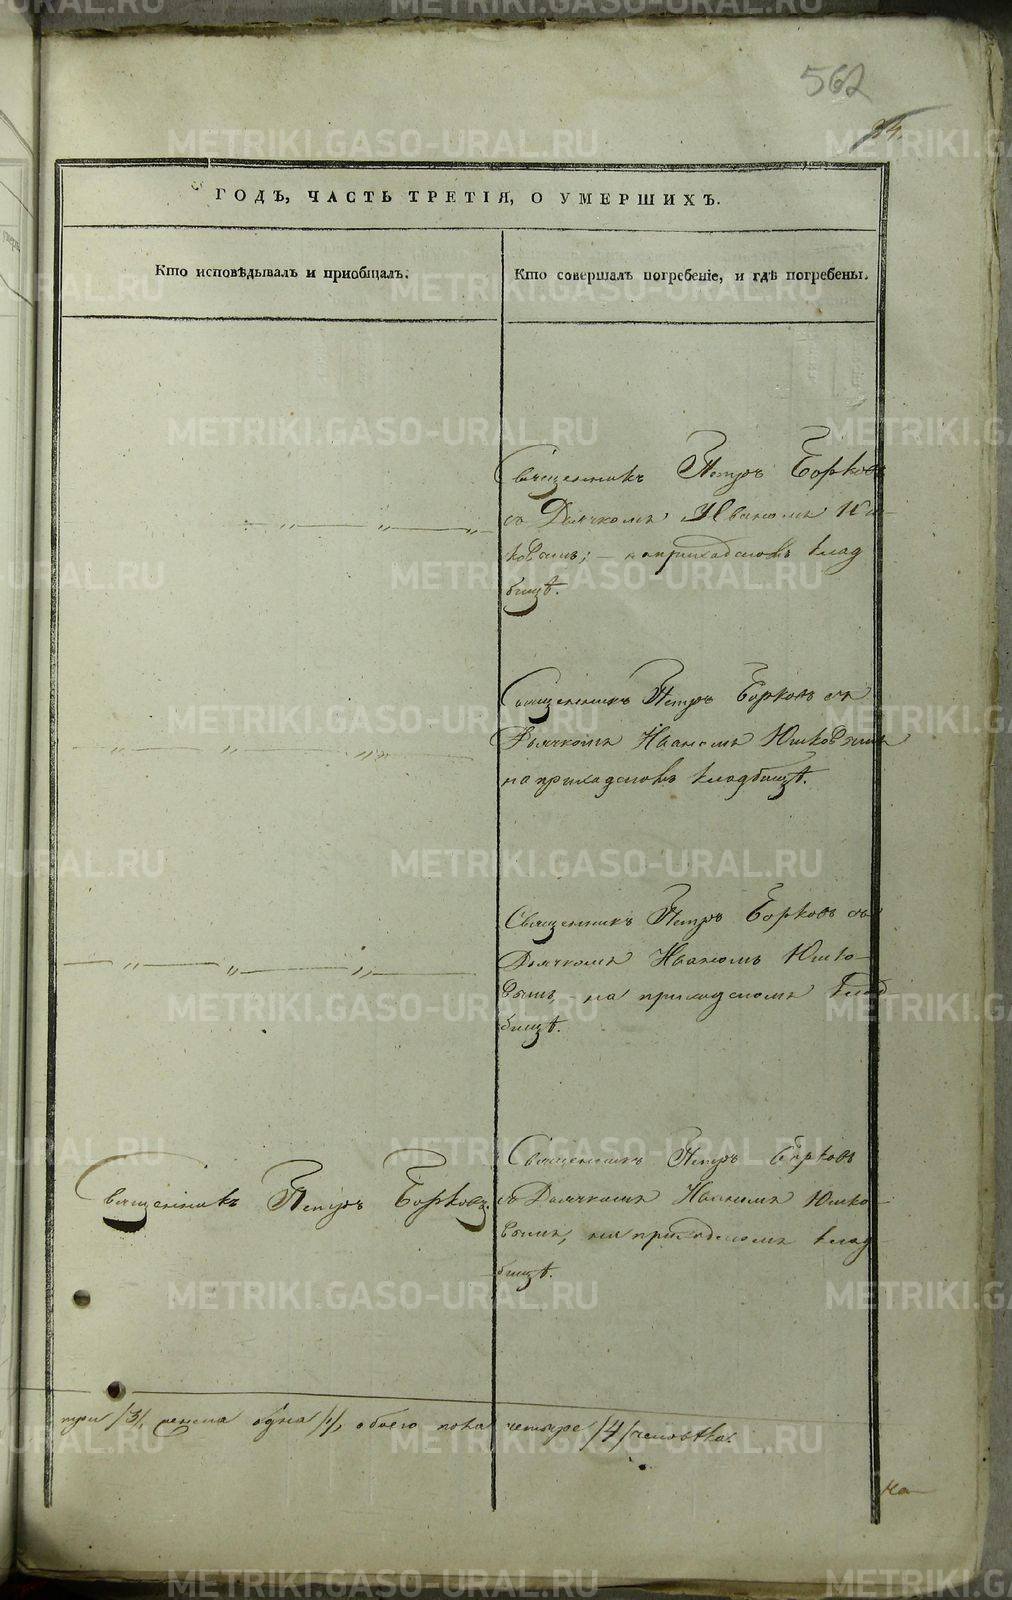 562
34.
ГОДЪ, ЧАСТЬ ТРЕТІЯ, О УМЕРШИХЪ.
Кто исповѣдывалъ и пріобщалъ.
Кто совершалъ погребеніе, и гдѣ погребены.
Священникъ Петръ Борковъ
съ Дьячкомъ Иваномъ Юш-
ковымъ; – на приходскомъ клад
бищѣ.
Священникъ Петръ Борковъ съ
Дьячкомъ Иваномъ Юшковымъ
на приходскомъ кладбищѣ.
Священникъ Петръ Борковъ съ
Дьячкомъ Иваномъ Юшко-
вымъ, на приходскомъ клад
бищѣ.
Священникъ Петръ Борковъ.
Священникъ Петръ Борковъ
съ Дьячкомъ Иваномъ Юшко-
вымъ, на приходскомъ клад
бищѣ.
три /3/, женска одна /1/, обоего пола четыре /4/ человѣка.
METRIKI.GASO-URAL.RU